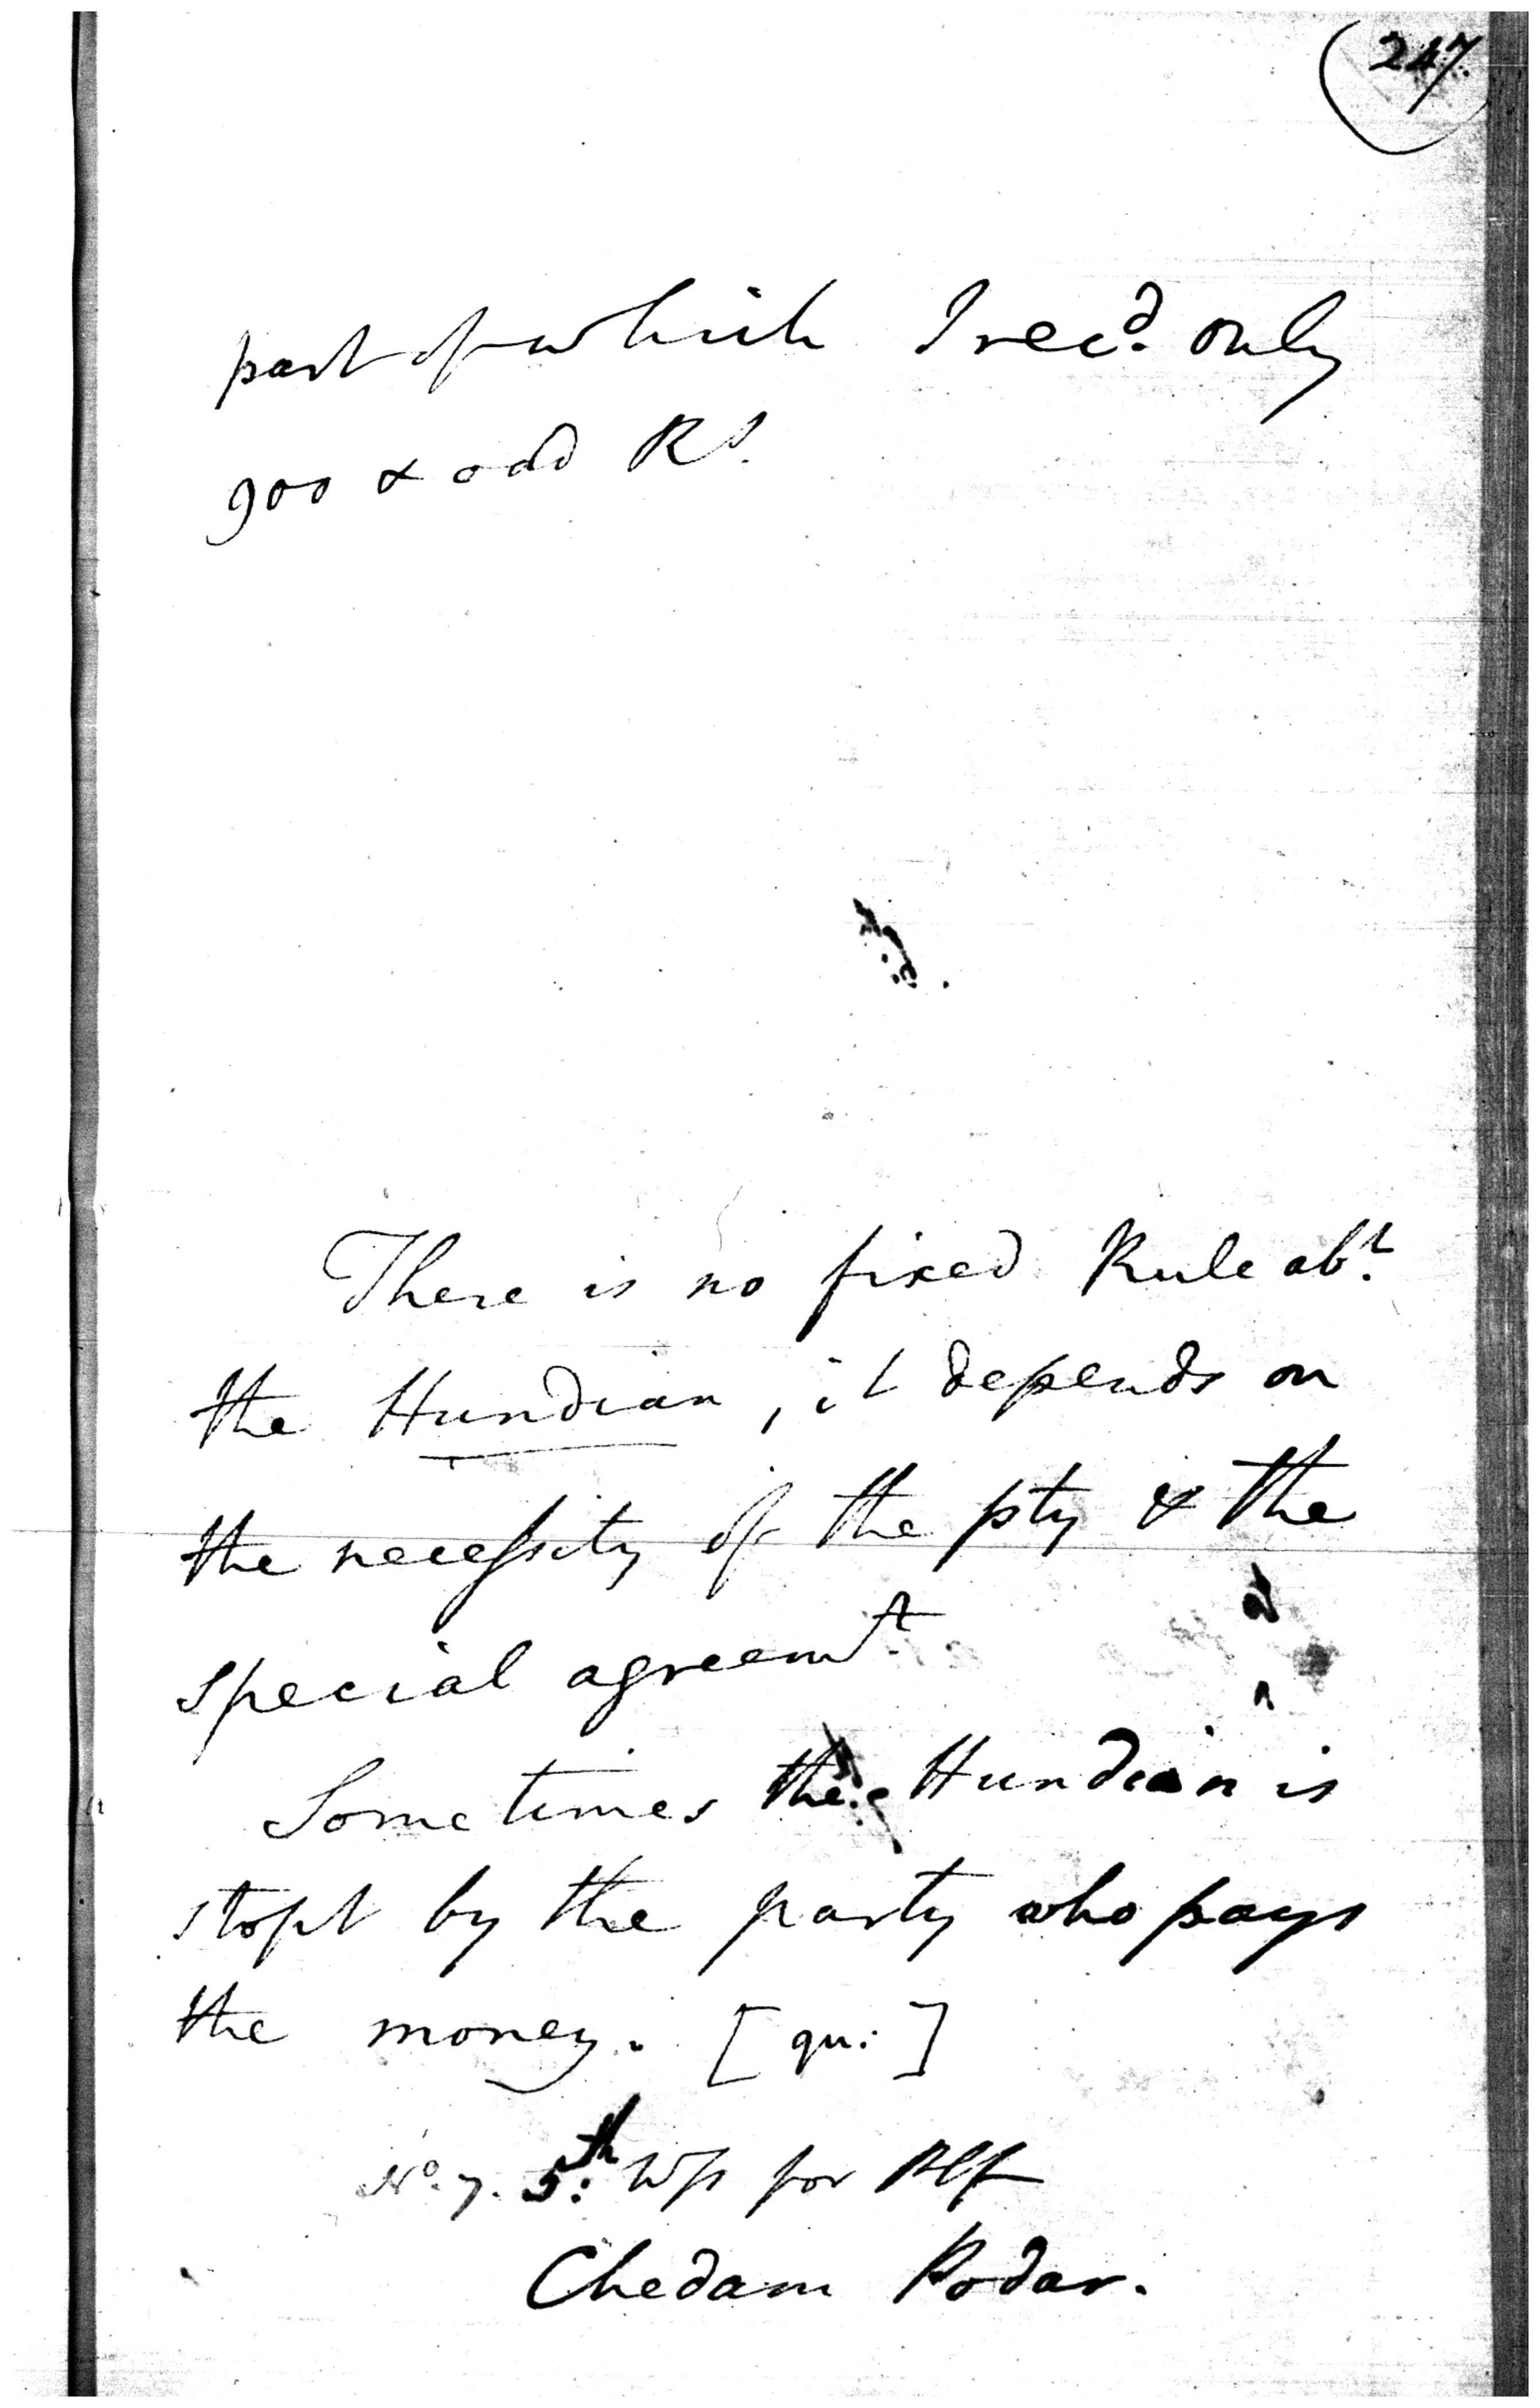 247.
part of which I recd. only
900 & odd Rs.
There is no fixed Rule abt.
the Hundian, it depends on
the necessity of the pty & the
special agreemt.
Sometimes the Hundian is
stopt by the party who pays
the money. [qu:]
No. 7. 5th: Wss for Plf
Chedam Podar.